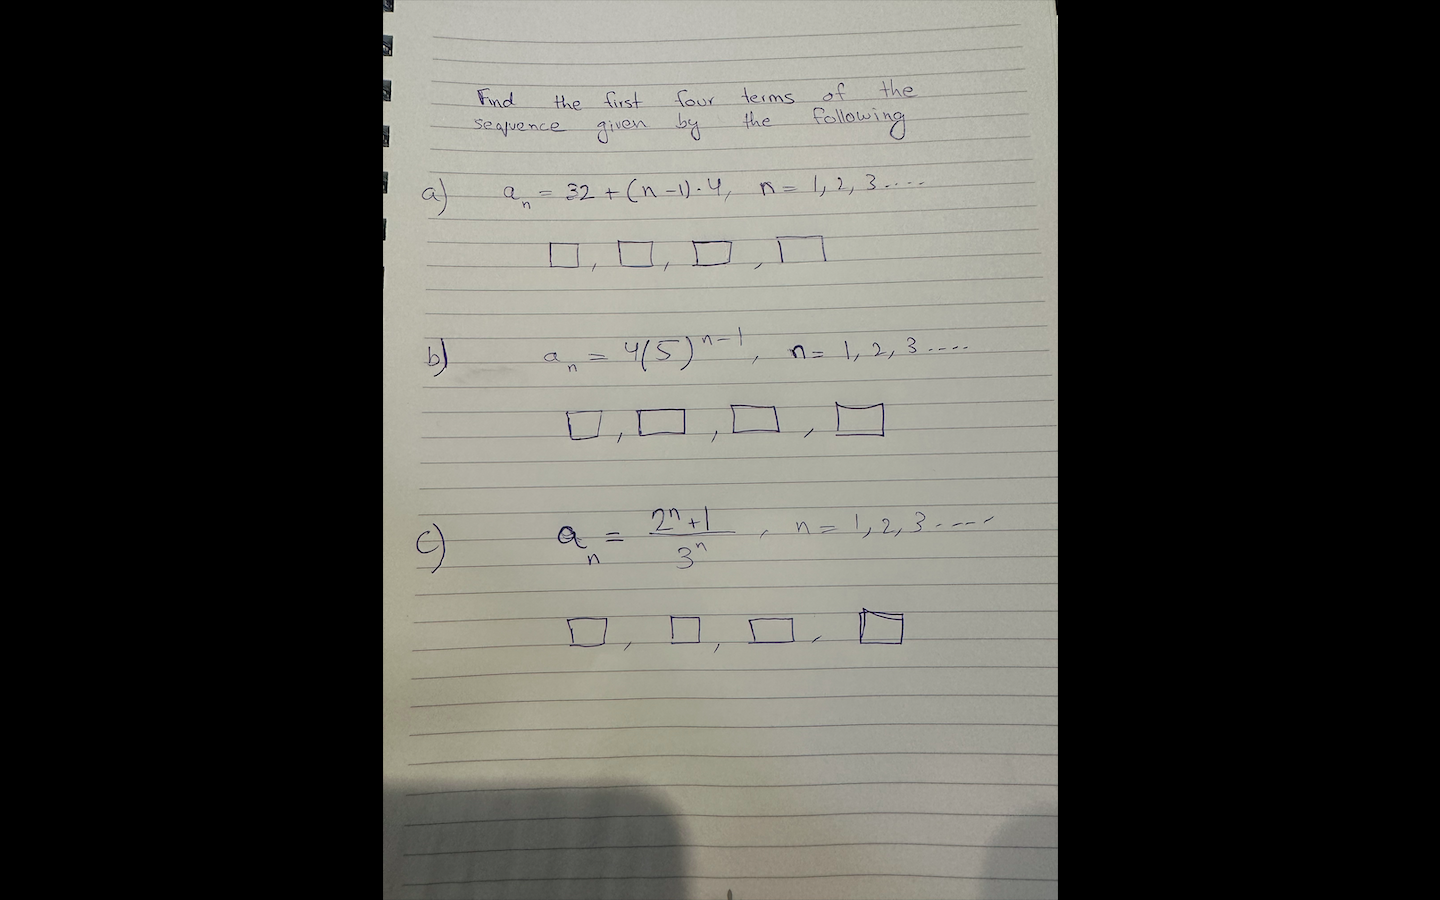 Find the first four terms of the
sequence given by the following
a) aₙ = 32 + (n-1)·4, n = 1, 2, 3....
□, □, □, □
b) aₙ = 4(5)ⁿ⁻¹, n = 1, 2, 3....
□, □, □, □
c) aₙ = (2ⁿ+1)/3ⁿ, n = 1, 2, 3....
□, □, □, □